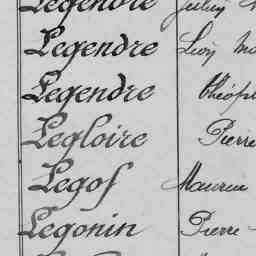 Legendre
Legendre Léon
Legendre
Legloire Pierre
Legof Maurice
Legonin Pierre